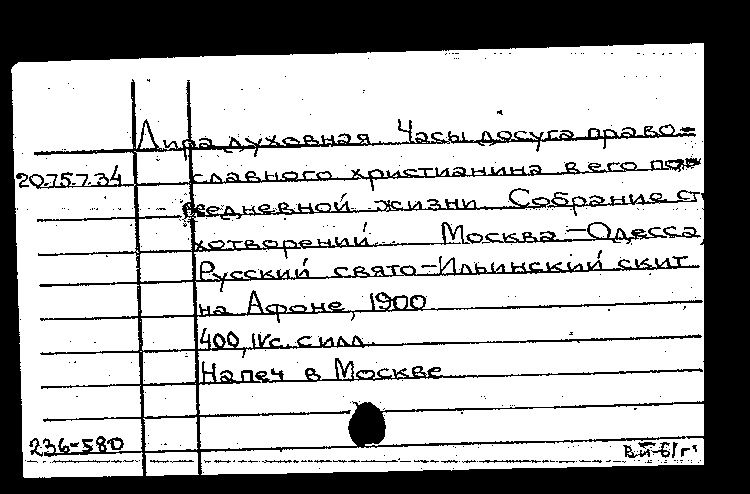 Лира духовная Часы досуга право=
20.75.7.34 славного христианина в его пов=
седневной жизни Собрание сти
хотворений Москва-Одесса,
Русский свято-Ильинский скит
на Афоне, 1900
400, IVс. с илл.
Напеч в Москве
236-580